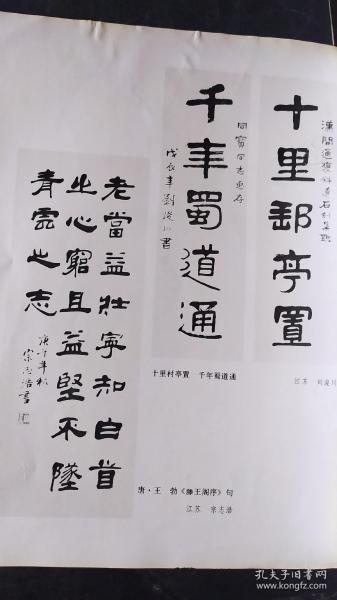 十里郵亭置
漢開通褒斜道石刻集聯
千年蜀道通
同寶同志惠存
戊辰年劉浚川書
十里村亭置　千年蜀道通
江苏　刘浚川
老當益壯寧知白首
之心窮且益堅不墜
青雲之志
庚午年秋
宗志浩書
唐·王　勃《滕王阁序》句
江苏　宗志浩
孔夫子旧书网